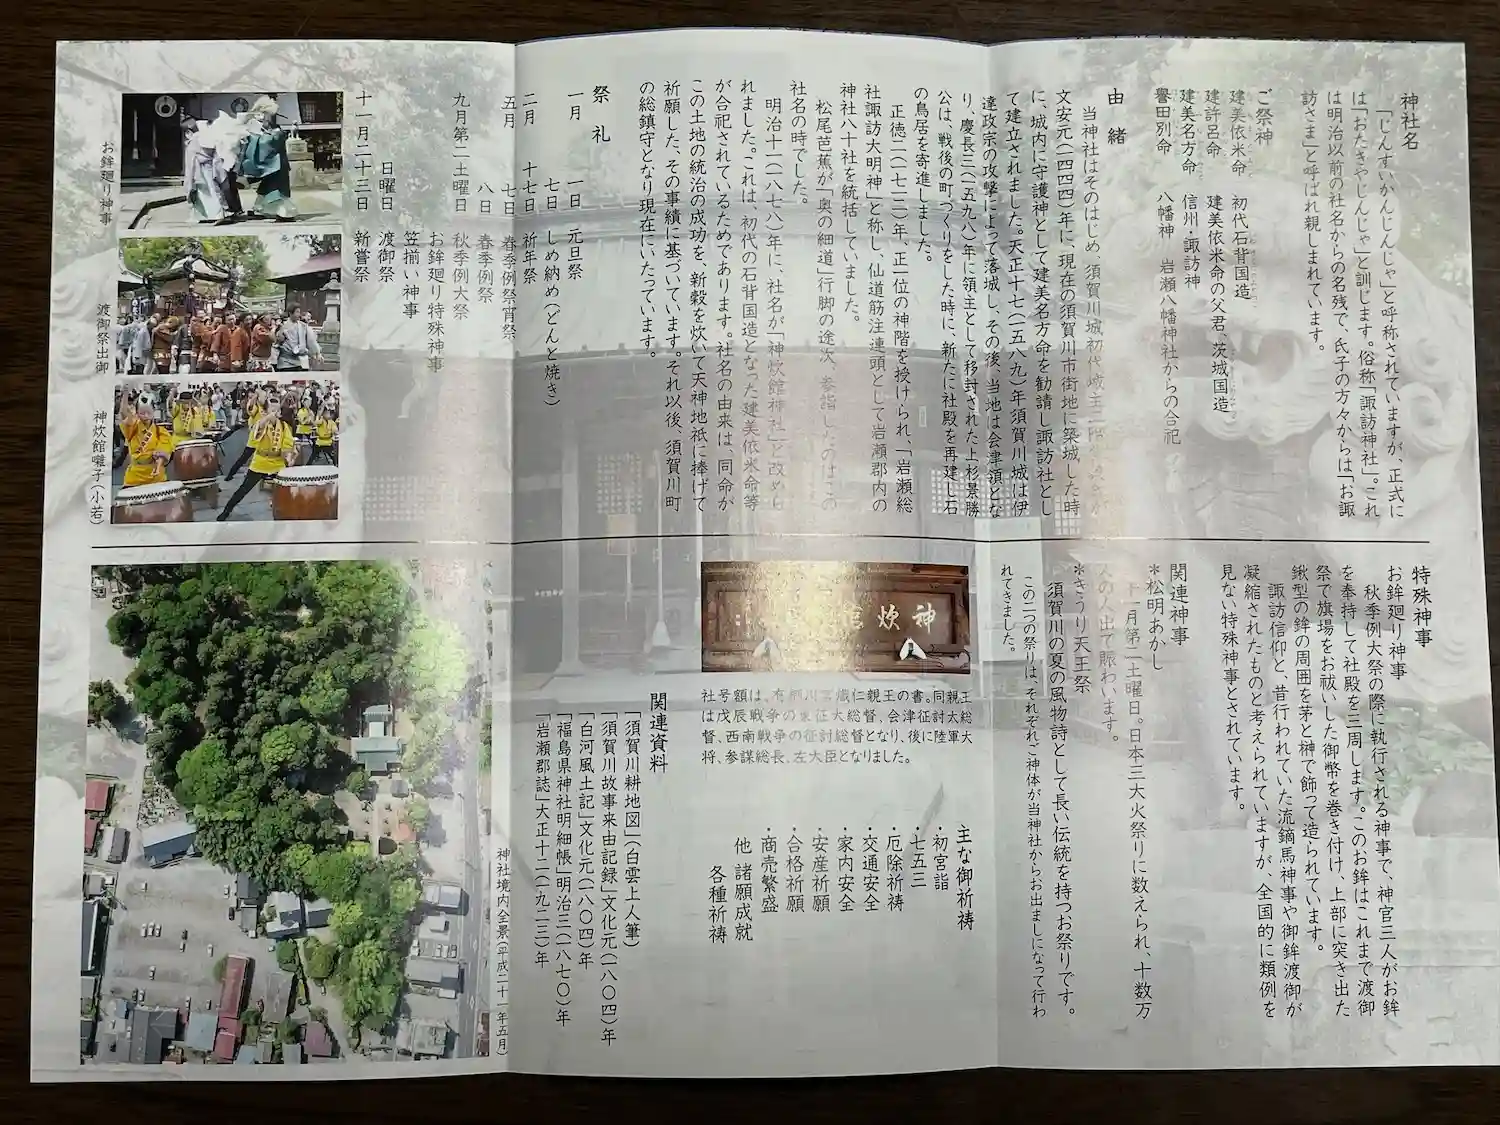 神社名
「しんすいかんじんじゃ」と呼称されていますが、正式に
は「おたきやじんじゃ」と訓じます。俗称「諏訪神社」。これ
は明治以前の社名からの名残で、氏子の方々からは「お諏
訪さま」と呼ばれ親しまれています。
ご祭神
建美依米命 初代石背国造
建許呂命 建美依米命の父君、茨城国造
建美名方命 信州・諏訪神
譽田別命 八幡神 岩瀬八幡神社からの合祀
由緒
当神社はそのはじめ、須賀川城初代城主二階
文安元(一四四四)年に、現在の須賀川市街地に築城した時
に、城内に守護神として建美名方命を勧請し諏訪社とし
て建立されました。天正十七(一五八九)年須賀川城は伊
達政宗の攻撃によって落城し、その後、当地は会津領とな
り、慶長三(一五九八)年に領主として移封された上杉景勝
公は、戦後の町づくりをした時に、新たに社殿を再建し石
の鳥居を寄進しました。
正徳二(一七一二)年、正一位の神階を授けられ、「岩瀬総
社諏訪大明神」と称し、仙道筋注連頭として岩瀬郡内の
神社八十社を統括していました。
松尾芭蕉が「奥の細道」行脚の途次、参詣したのはこの
社名の時でした。
明治十一(一八七八)年に、社名が「神炊館神社」と改めら
れました。これは、初代の石背国造となった建美依米命等
が合祀されているためであります。社名の由来は、同命が
この土地の統治の成功を、新穀を炊いて天神地祇に捧げて
祈願した、その事績に基づいています。それ以後、須賀川町
の総鎮守となり現在にいたっています。
祭礼
一月 一日 元旦祭
七日 しめ納め(どんと焼き)
二月 十七日 祈年祭
五月 七日 春季例祭宵祭
八日 春季例祭
九月第二土曜日 秋季例大祭
お鉾廻り特殊神事
笠揃い神事
日曜日 渡御祭
十一月二十三日 新嘗祭
お鉾廻り神事
渡御祭出御
神炊館囃子(小若)
特殊神事
お鉾廻り神事
秋季例大祭の際に執行される神事で、神官三人がお鉾
を奉持して社殿を三周します。このお鉾はこれまで渡御
祭で旗場をお祓いした御幣を巻き付け、上部に突き出た
鍬型の鉾の周囲を茅と榊で飾って造られています。
諏訪信仰と、昔行われていた流鏑馬神事や御鉾渡御が
凝縮されたものと考えられていますが、全国的に類例を
見ない特殊神事とされています。
関連神事
*松明あかし
十一月第二土曜日。日本三大火祭りに数えられ、十数万
人の人出で賑わいます。
*きうり天王祭
須賀川の夏の風物詩として長い伝統を持つお祭りです。
この二つの祭りは、それぞれご神体が当神社からお出ましになって行わ
れてきました。
神炊
社号額は、有栖川宮熾仁親王の書。同親王
は戊辰戦争の東征大総督、会津征討大総
督、西南戦争の征討総督となり、後に陸軍大
将、参謀総長、左大臣となりました。
主な御祈祷
・初宮詣
・七五三
・厄除祈祷
・交通安全
家内安全
・安産祈願
・合格祈願
・商売繁盛
他 諸願成就
各種祈祷
関連資料
「須賀川耕地図」(白雲上人筆)
「須賀川故事来由記録」文化元(一八〇四)年
「白河風土記」文化元(一八〇四)年
「福島県神社明細帳」明治三(一八七〇)年
「岩瀬郡誌」大正十二(一九二三)年
神社境内全景(平成二十一年五月)